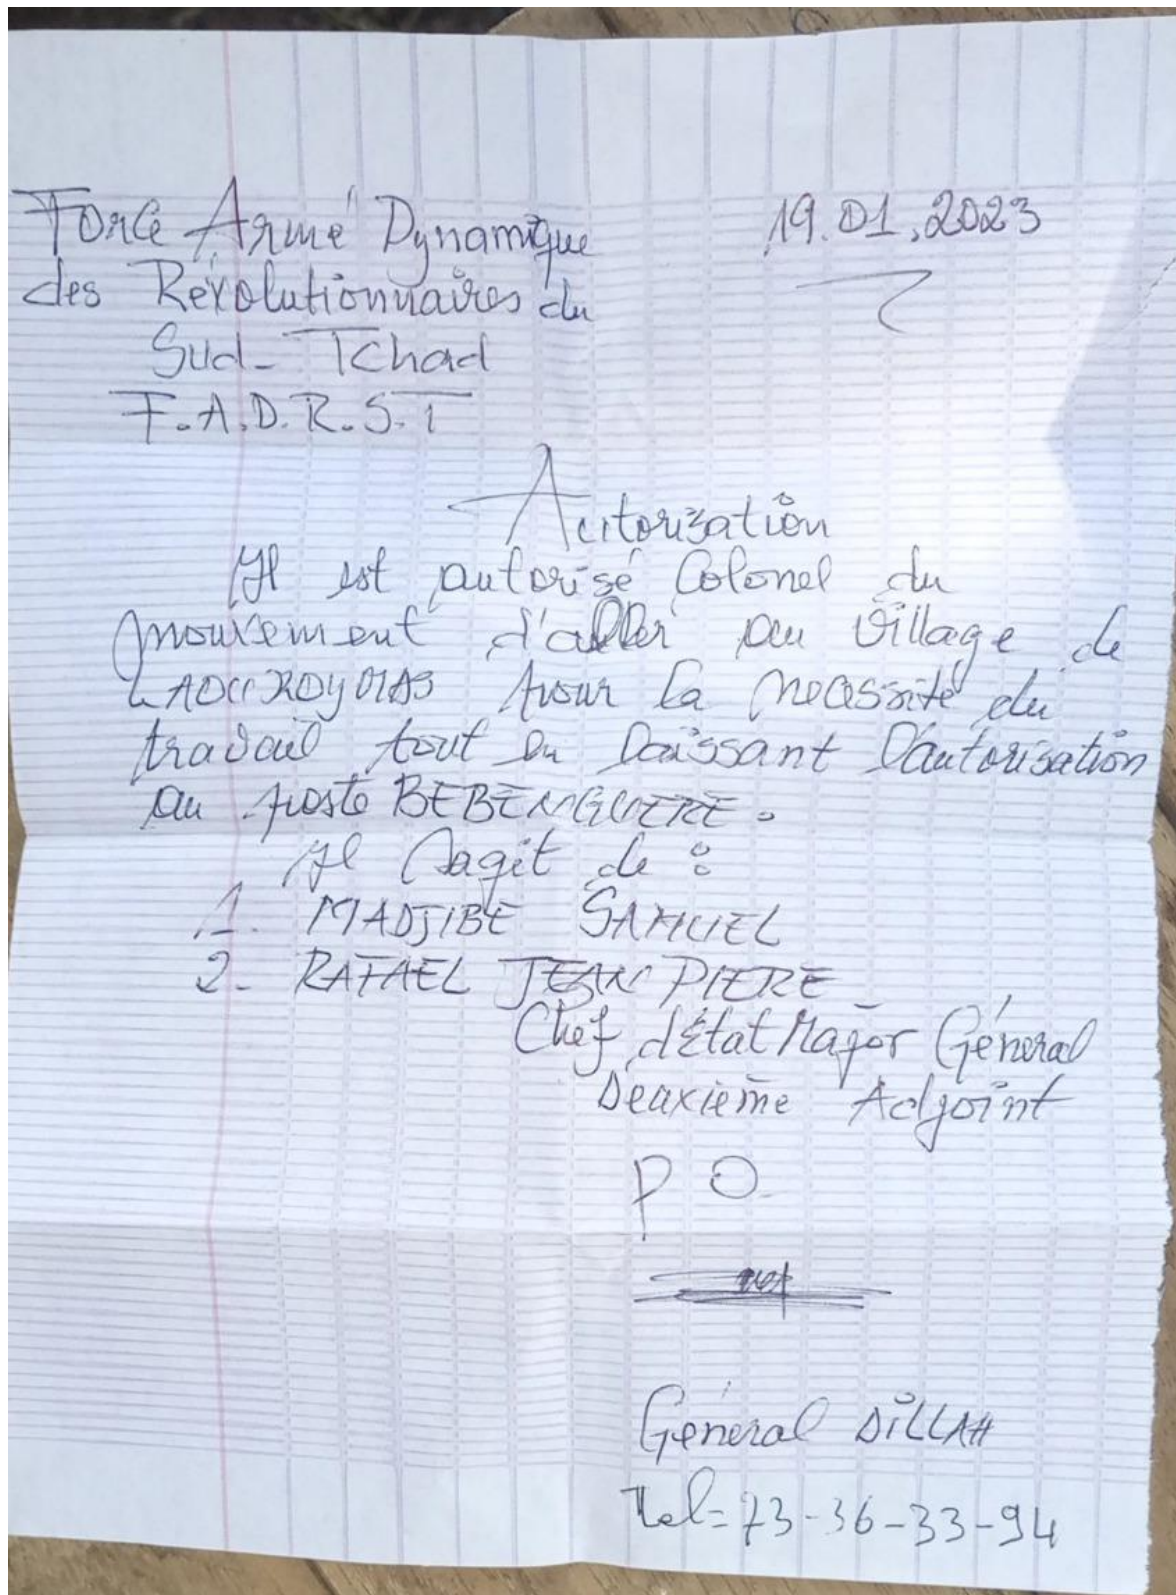 Force Armé Dynamique
des Révolutionnaires du
Sud-Tchad
F.A.D.R.S.T
19.01.2023
Autorization
Il est autorisé Colonel du
mouvement d'aller au village de
pour la necessité du
travail tout en laissant l'autorisation
au poste BEBENGUERE.
Il s'agit de :
1. MADJIBE SAMUEL
2- RAFAEL JEAN PIERE
Chef d'État Major Général
Deuxième Adjoint
P O.
Général DILLAH
Tel= 73-36-33-94